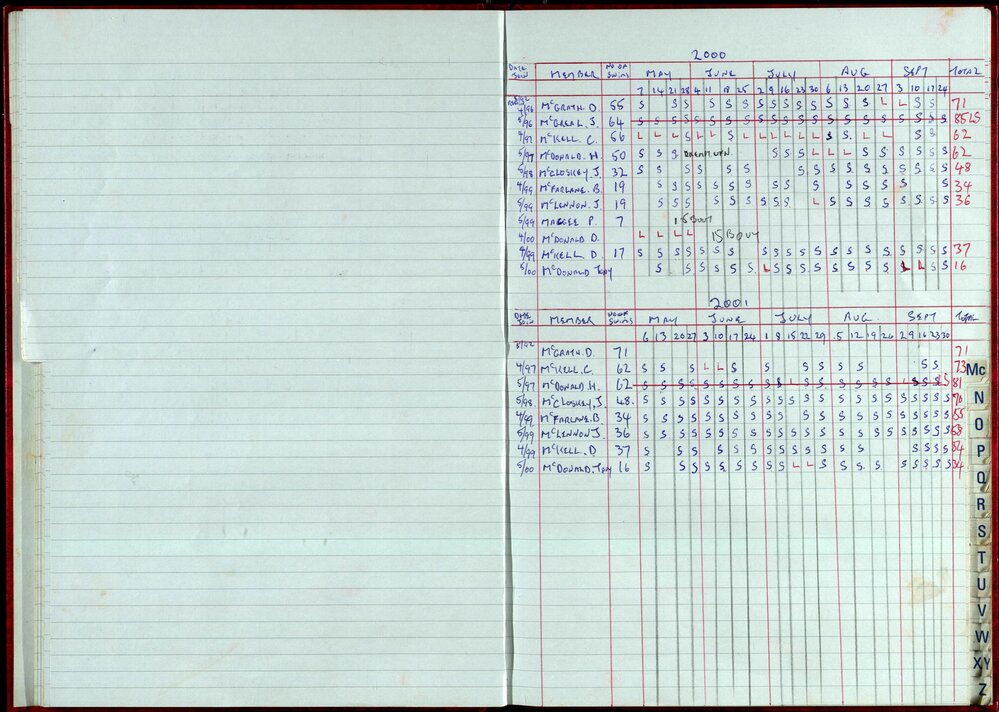 2000
DATE JOIN MEMBER NO OF SWIMS MAY JUNE JULY AUG SEPT TOTAL
7 14 21 28 4 11 18 25 2 9 16 23 30 6 13 20 27 3 10 17 24
McGRATH. D. 55 S S S S S S S S S S S S S S S L L S S 71
5/96 McGREAL. J. 64 S S S S S S S S S S S S S S S S S S S S S 85 LS
4/97 McKELL. C. 56 L L L S L L S L L L L L L S S L L S S 62
5/97 McDONALD. H. 50 S S S S S S L L L S S S S S S 62
5/98 McCLOSKEY. J. 32 S S S S S S S S S S S S S S S S 48
4/99 McFARLANE. B. 19 S S S S S S S S S S S S S S S 34
5/99 McLENNON. J 19 S S S S S S S S S S L S S S S S S S S 36
5/99 MAGEE P. 7 15 BOUY
4/00 McDONALD D. L L L L 15 BOUY
4/99 McKELL D. 17 S S S S S S S S S S S S S S S S S S S S 37
5/00 McDONALD Tony S S S S S S L S S S S S S S S L L S S 16
2001
DATE JOIN MEMBER NO OF SWIMS MAY JUNE JULY AUG. SEPT TOTAL
6 13 20 27 3 10 17 24 1 8 15 22 29 5 12 19 26 2 9 16 23 30
5/92 McGRATH. D. 71 71
4/97 McKELL. C. 62 S S S L L S S S S S S S S 73
5/97 McDONALD. H. 62 81
5/98. McCLOSKEY. J. 48. S S S S S S S S S S S S S S S S S S S S S S 70
4/99 McFARLANE. B. 34 S S S S S S S S S S S S S S S S S S S S S 55
5/99 McLENNON J. 36 S S S S S S S S S S S S S S S S S S S S S S 58
4/99 McKELL. D 37 S S S S S S S S S S S S S S S S S
5/00 McDONALD. Tony 16 S S S S S S S S S L L S S S S S S S S S 34
Mc
N
O
P
Q
R
S
T
U
V
W
XY
Z